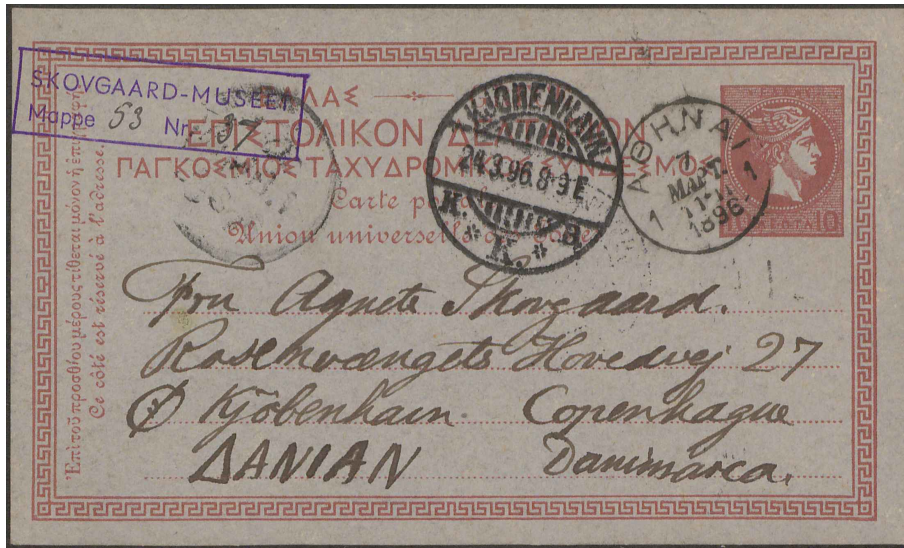 SKOVGAARD-MUSEET
Mappe 53 Nr. 137
ΕΛΛΑΣ
ΕΠΙΣΤΟΛΙΚΟΝ ΔΕΛΤΑΡΙΟΝ
ΠΑΓΚΟΣΜΙΟΣ ΤΑΧΥΔΡΟΜΙΚΟΣ ΣΥΝΔΕΣΜΟΣ
Carte postale
Union universelle
KJØBENHAVN
24.3.96.8-9E
K. B.
* K. *
ΑΘΗΝΑΙ
7
ΜΑΡΤ.
1 1
1896
10 ΛΕΠΤΑ 10
Ἐπὶ τοῦ προσθίου μέρους τίθεται μόνον ἡ ἐπιγραφή
Ce côté est réservé à l'adresse.
Fru Agnete Skovgaard.
Rosenvængets Hovedvej 27
Ø Kjöbenhavn. Copenhague
ΔΑΝΙΑΝ Danimarca.